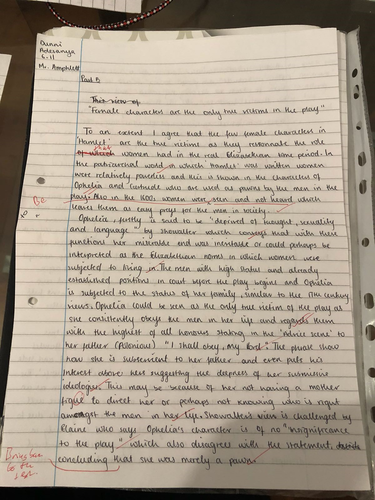 Dunni
Adesanya
6.11
Mr. Amphlett
Part B
This view of
"Female characters are the only true victims in the play."
To an extent I agree that the few female characters in
Hamlet are the true victims as they resonnate the role
of which that women had in the real Elizabethan time period. In
the patriarchal world in which Hamlet was written women
were relatively powerless and this is shown in the characters of
Ophelia and Gertrude who are used as pawns by the men in the
play. Also in the 1600s women were seen and not heard which
Be
leaves them as easy preys for the men in society.
Ophelia, firstly is said to be "deprived of thought, sexuality
and language" by Showalter which conveys that with these
functions her miserable end was inevitable or could perhaps be
interpreted as the Elizabethan norms in which women were
subjected to living in. The men with high status and already
established positions in court before the play begins and Ophelia
is subjected to the status of her family, similar to the 17th century
views. Ophelia could be seen as the only true victim of the play as
she consistently obeys the men in her life and regards them
with the highest of all honours stating in the 'advice scene' to
her father (Polonius) "I shall obey, my lord". The phrase show
how she is subservient to her father and even puts his
interest above hers suggesting the deepness of her submissive
ideologies. This may be because of her not having a mother
figure to direct her or perhaps not knowing who is right
amongst the men in her life. Showalter's view is challenged by
who says Ophelia's character is of no "insignificance
to the play" which also disagrees with the statement,
concluding that she was merely a pawn.
Bring back
to the